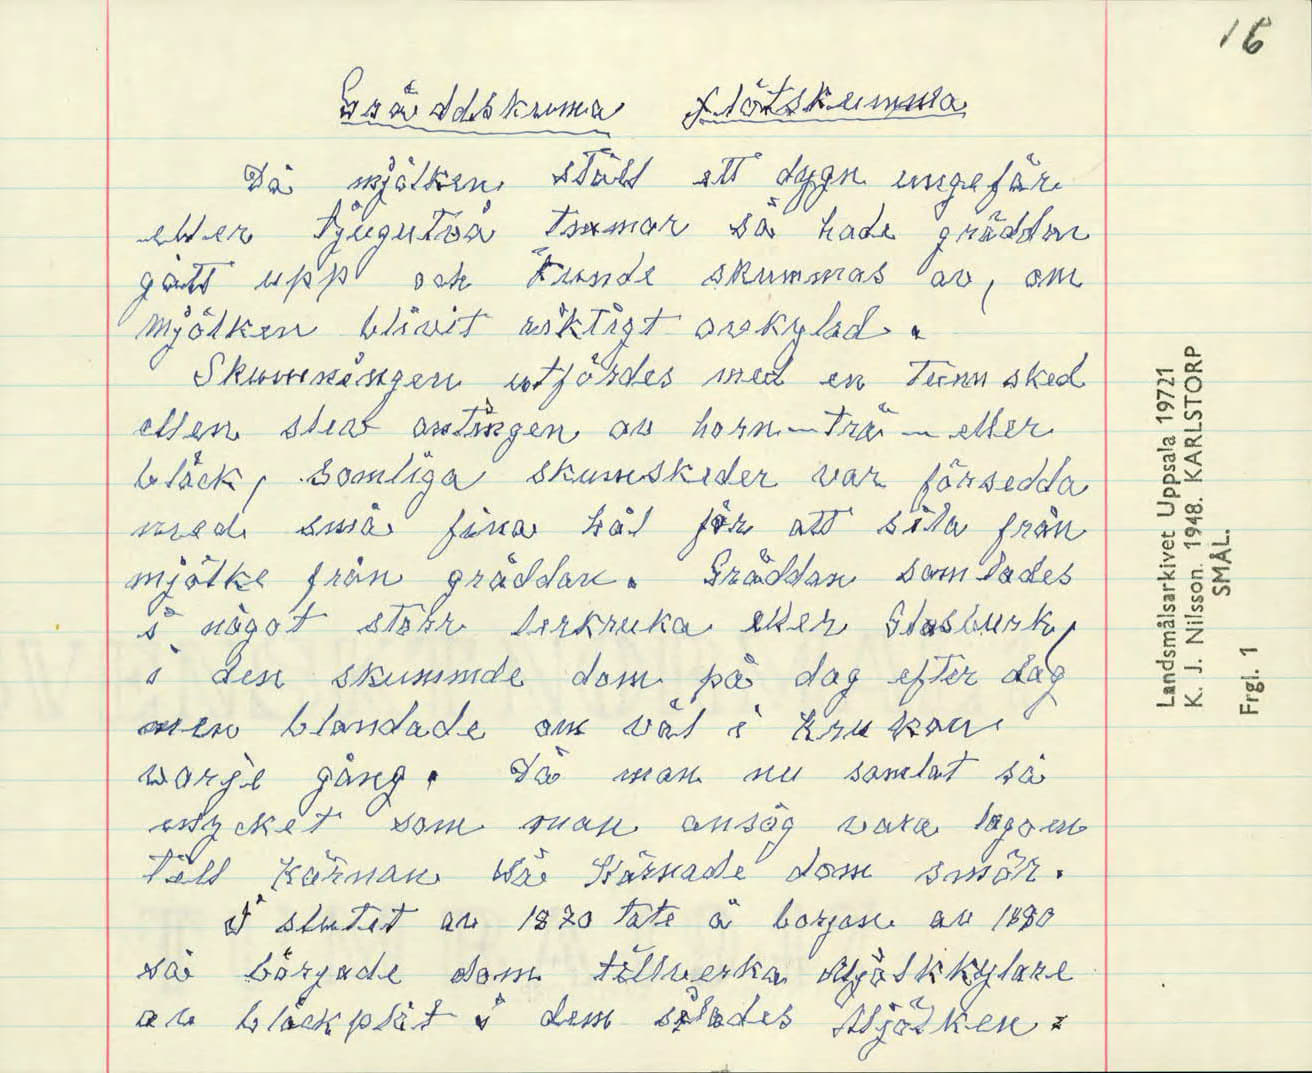 16
Gräddskuma flötskumma
Då mjölken stått ett dygn ungefär
eller tjugutvå timmar så hade grädden
gått upp och kunde skummas av, om
mjölken blivit riktigt avkyld.
Skumningen utfördes med en tunn sked
eller slev antingen av horn - trä - eller
bläck, somliga skumskeder var försedda
med små fina hål för att sila från
mjölke från gräddan. Gräddan samlades
i något störr lerkruka eller Glasburk,
i den skummde dom på dag efter dag
men blandade om väl i krukan
varje gång. Då man nu samlat så
mycket som man ansåg vara lagom
till kärnan så kärnade dom smör.
I slutet av 1870 talet å borjan av 1880
så började dom tillverka Mjölkkylare
av bläckplåt i dem silades Mjölken
Landsmålsarkivet Uppsala 19721
K. J. Nilsson. 1948. KARLSTORP
SMÅL.
Frgl. 1